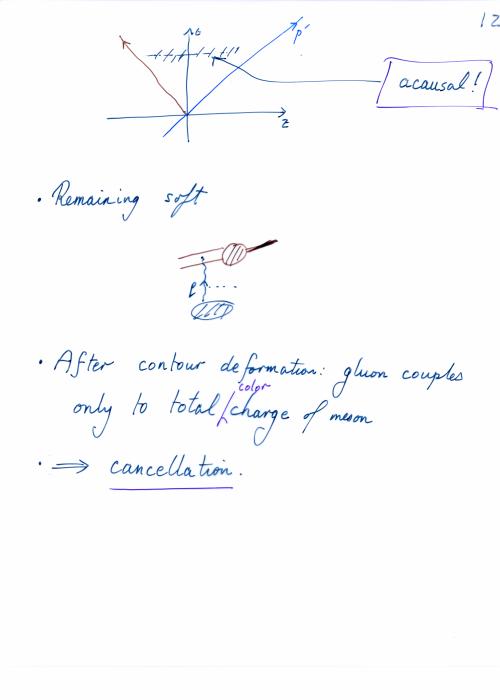 12
t
p'
z
acausal!
• Remaining soft
ℓ
• After contour deformation: gluon couples
only to total color charge of meson
• ⟹ cancellation.